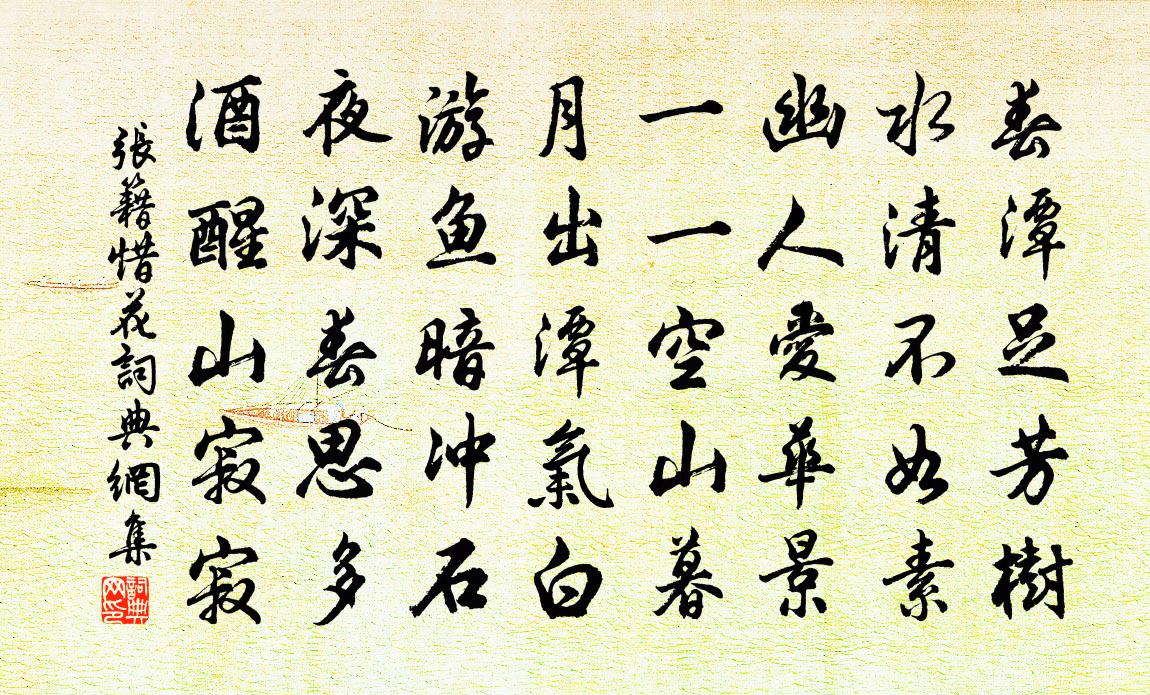 春潭足芳樹
水清不如素
幽人愛華景
一一空山暮
月出潭氣白
游鱼暗冲石
夜深春思多
酒醒山寂寂
張籍惜花詞典網集
詞典网印